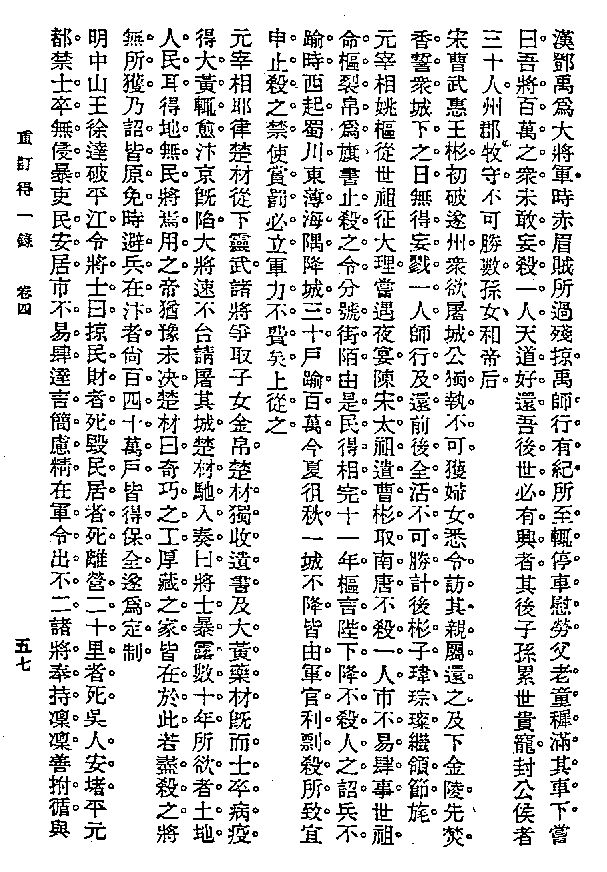 漢鄧禹爲大將軍時赤眉賊所過殘掠禹師行有紀所至輒停車慰勞父老童穉滿其車下嘗
曰吾將百萬之衆未敢妄殺一人天道好還吾後世必有興者其後子孫累世貴寵封公侯者
三十人州郡牧守不可勝數孫女和帝后
宋曹武惠王彬初破遂州衆欲屠城公獨執不可獲婦女悉令訪其親屬還之及下金陵先焚
香誓衆城下之日無得妄戮一人師行及還前後全活不可勝計後彬子瑋琮璨繼領節旄
元宰相姚樞從世祖征大理嘗遇夜宴陳宋太祖遣曹彬取南唐不殺一人市不易肆事世祖
命樞裂帛爲旗書止殺之令分號街陌由是民得相完十一年樞言陛下降不殺人之詔兵不
踰時西起蜀川東薄海隅降城三十戸踰百萬今夏徂秋一城不降皆由軍官利剽殺所致宜
申止殺之禁使賞罰必立軍力不費矣上從之
元宰相耶律楚材從下靈武諸將爭取子女金帛楚材獨收遺書及大黃藥材旣而士卒病疫
得大黃輒愈汴京旣陷大將速不台請屠其城楚材馳入奏曰將士暴露數十年所欲者土地
人民耳得地無民將焉用之帝猶豫未決楚材曰奇巧之工厚藏之家皆在於此若盡殺之將
無所獲乃詔皆原免時避兵在汴者尙百四十萬戸皆得保全遂爲定制
明中山王徐達破平江令將士曰掠民財者死毀民居者死離營二十里者死吳人安堵平元
都禁士卒無侵暴吏民安居市不易肆達言簡慮精在軍令出不二諸將奉持凜凜善拊循與
重訂得一錄 卷四 五七